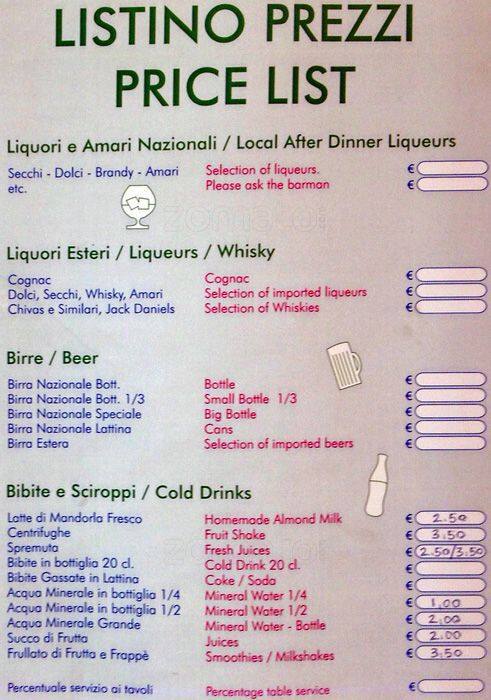 LISTINO PREZZI
PRICE LIST
Liquori e Amari Nazionali / Local After Dinner Liqueurs
Secchi - Dolci - Brandy - Amari Selection of liqueurs. €
etc. Please ask the barman €
zomato
Liquori Esteri / Liqueurs / Whisky
Cognac Cognac €
Dolci, Secchi, Whisky, Amari Selection of imported liqueurs €
Chivas e Similari, Jack Daniels Selection of Whiskies €
Birre / Beer
Birra Nazionale Bott. Bottle €
Birra Nazionale Bott. 1/3 Small Bottle 1/3 €
Birra Nazionale Speciale Big Bottle €
Birra Nazionale Lattina Cans €
Birra Estera Selection of imported beers €
Bibite e Sciroppi / Cold Drinks
Latte di Mandorla Fresco Homemade Almond Milk € 2.50
Centrifughe Fruit Shake € 3.50
Spremuta Fresh Juices € 2.50/3.50
Bibite in bottiglia 20 cl. Cold Drink 20 cl. €
Bibite Gassate in Lattina Coke / Soda €
Acqua Minerale in bottiglia 1/4 Mineral Water 1/4
Acqua Minerale in bottiglia 1/2 Mineral Water 1/2 € 1,00
Acqua Minerale Grande Mineral Water - Bottle € 2.00
Succo di Frutta Juices € 2.00
Frullato di Frutta e Frappè Smoothies / Milkshakes € 3.50
Percentuale servizio ai tavoli Percentage table service €